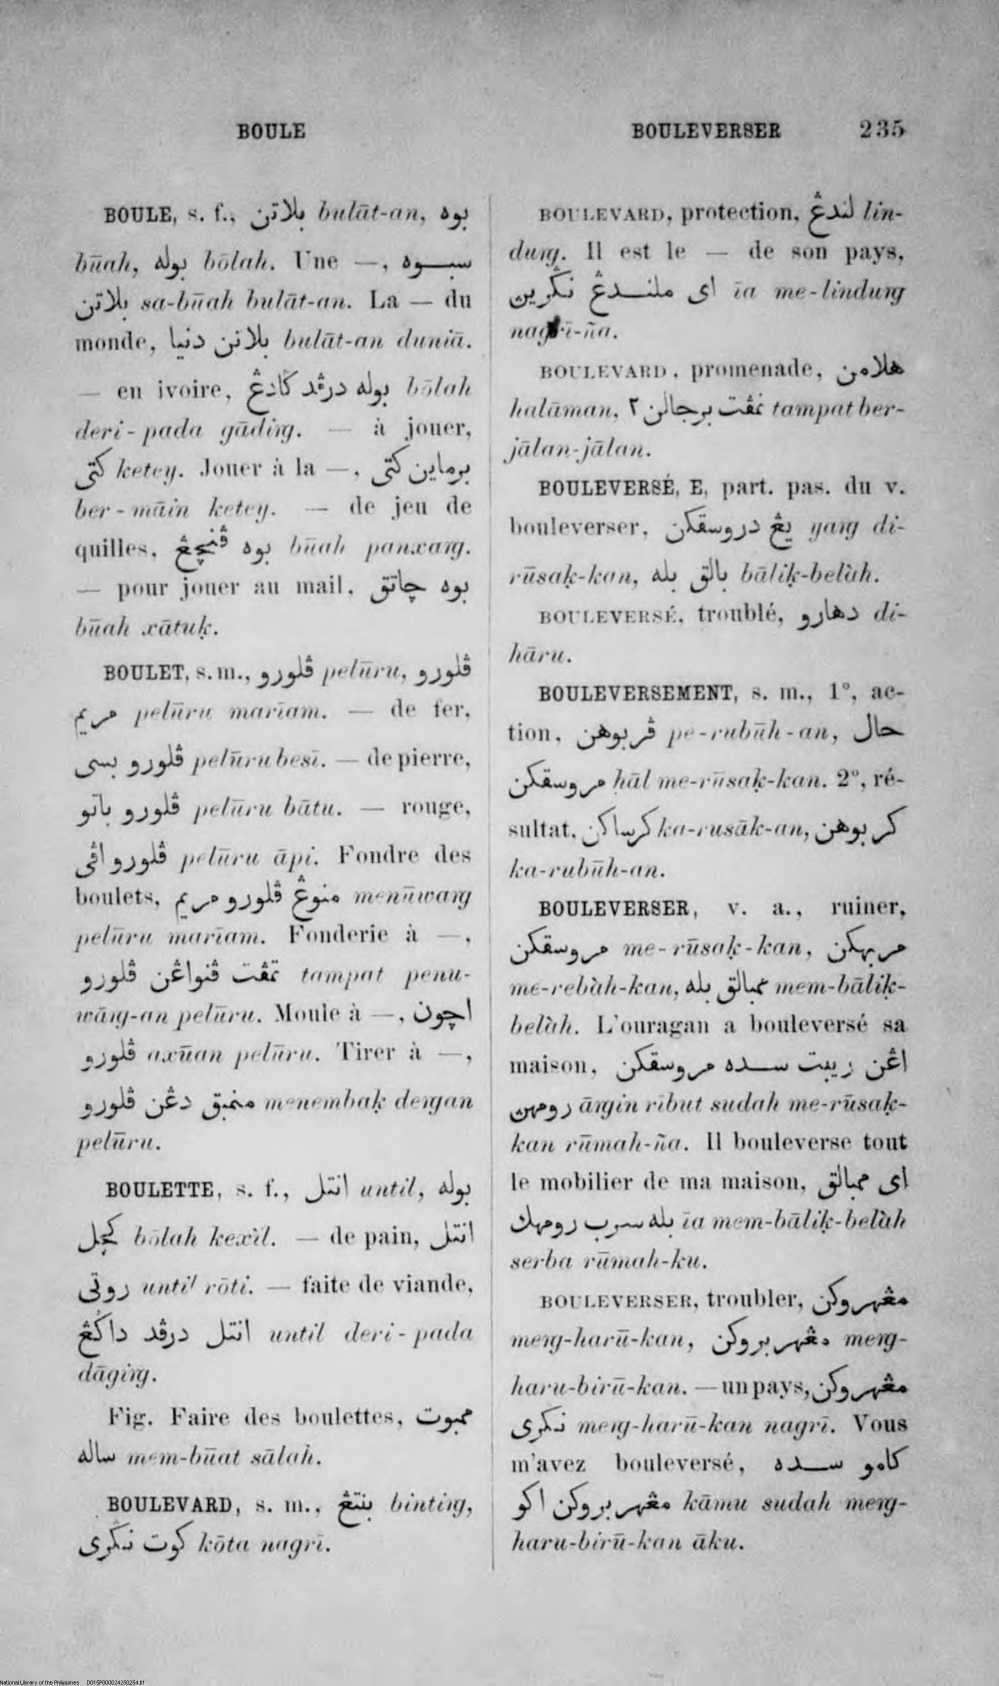 BOULE
BOULEVERSER 235
BOULE, s. f., بلاتن bulāt-an, بوه
būah, بوله bōlah. Une —, سبوه
بلاتن sa-būah bulāt-an. La — du
monde, بلاتن دنيا bulāt-an duniā.
— en ivoire, بوله درڤد ݢاديڠ bōlah
deri-pada gādiṉg. — à jouer,
كتى ketey. Jouer à la —, برماين كتى
ber-māin ketey. — de jeu de
quilles, بوه ڤنچڠ būah panxaṉg.
— pour jouer au mail, بوه چاتق
būah xātuḳ.
BOULET, s. m., ڤلورو pelūru, ڤلورو
مريم pelūru mariam. — de fer,
ڤلورو بسى pelūru besī. — de pierre,
ڤلورو باتو pelūru bātu. — rouge,
ڤلورو اڤى pelūru āpi. Fondre des
boulets, منوڠ ڤلورو مريم menūwaṉg
pelūru mariam. Fonderie à —,
تمڤت ڤنواڠن ڤلورو tampat penu-
wāṉg-an pelūru. Moule à —, اچون
ڤلورو axūan pelūru. Tirer à —,
منمبق دڠن ڤلورو menembaḳ deṉgan
pelūru.
BOULETTE, s. f., انتل until, بوله
كچل bōlah kexìl. — de pain, انتل
روتى until rōti. — faite de viande,
انتل درڤد داݢڠ until deri-pada
dāgiṉg.
Fig. Faire des boulettes, ممبوت
ساله mem-būat sālah.
BOULEVARD, s. m., بنتڠ bintiṉg,
كوت نݢرى kōta nagrī.
BOULEVARD, protection, لندڠ lin-
duṉg. Il est le — de son pays,
اى ملندڠ نݢرين īa me-linduṉg
nagrī-ña.
BOULEVARD, promenade, هلامن
halāman, تمڤت برجالن ٢ tampat ber-
jālan-jālan.
BOULEVERSÉ, E, part. pas. du v.
bouleverser, يڠ دروسقكن yaṉg di-
rūsaḳ-kan, بالق بله bālìḳ-belàh.
BOULEVERSÉ, troublé, دهارو di-
hāru.
BOULEVERSEMENT, s. m., 1°, ac-
tion, ڤربوهن pe-rubūh-an, حال
مروسقكن ḥāl me-rūsaḳ-kan. 2°, ré-
sultat, كرساكن ka-rusāk-an, كربوهن
ka-rubūh-an.
BOULEVERSER, v. a., ruiner,
مروسقكن me-rūsaḳ-kan, مربهكن
me-rebàh-kan, ممبالق بله mem-bālìḳ-
belàh. L'ouragan a bouleversé sa
maison, اڠن ريبت سده مروسقكن
رومهن āṉgin rībut sudah me-rūsaḳ-
kan rūmah-ña. Il bouleverse tout
le mobilier de ma maison, اى ممبالق
بله سرب رومهك īa mem-bālìḳ-belàh
serba rūmah-ku.
BOULEVERSER, troubler, مڠهروكن
meṉg-harū-kan, مڠهربروكن meṉg-
haru-birū-kan. — un pays, مڠهروكن
نݢرى meṉg-harū-kan nagrī. Vous
m'avez bouleversé, كامو سده
مڠهربروكن اكو kāmu sudah meṉg-
haru-birū-kan āku.
National Library of the Philippines